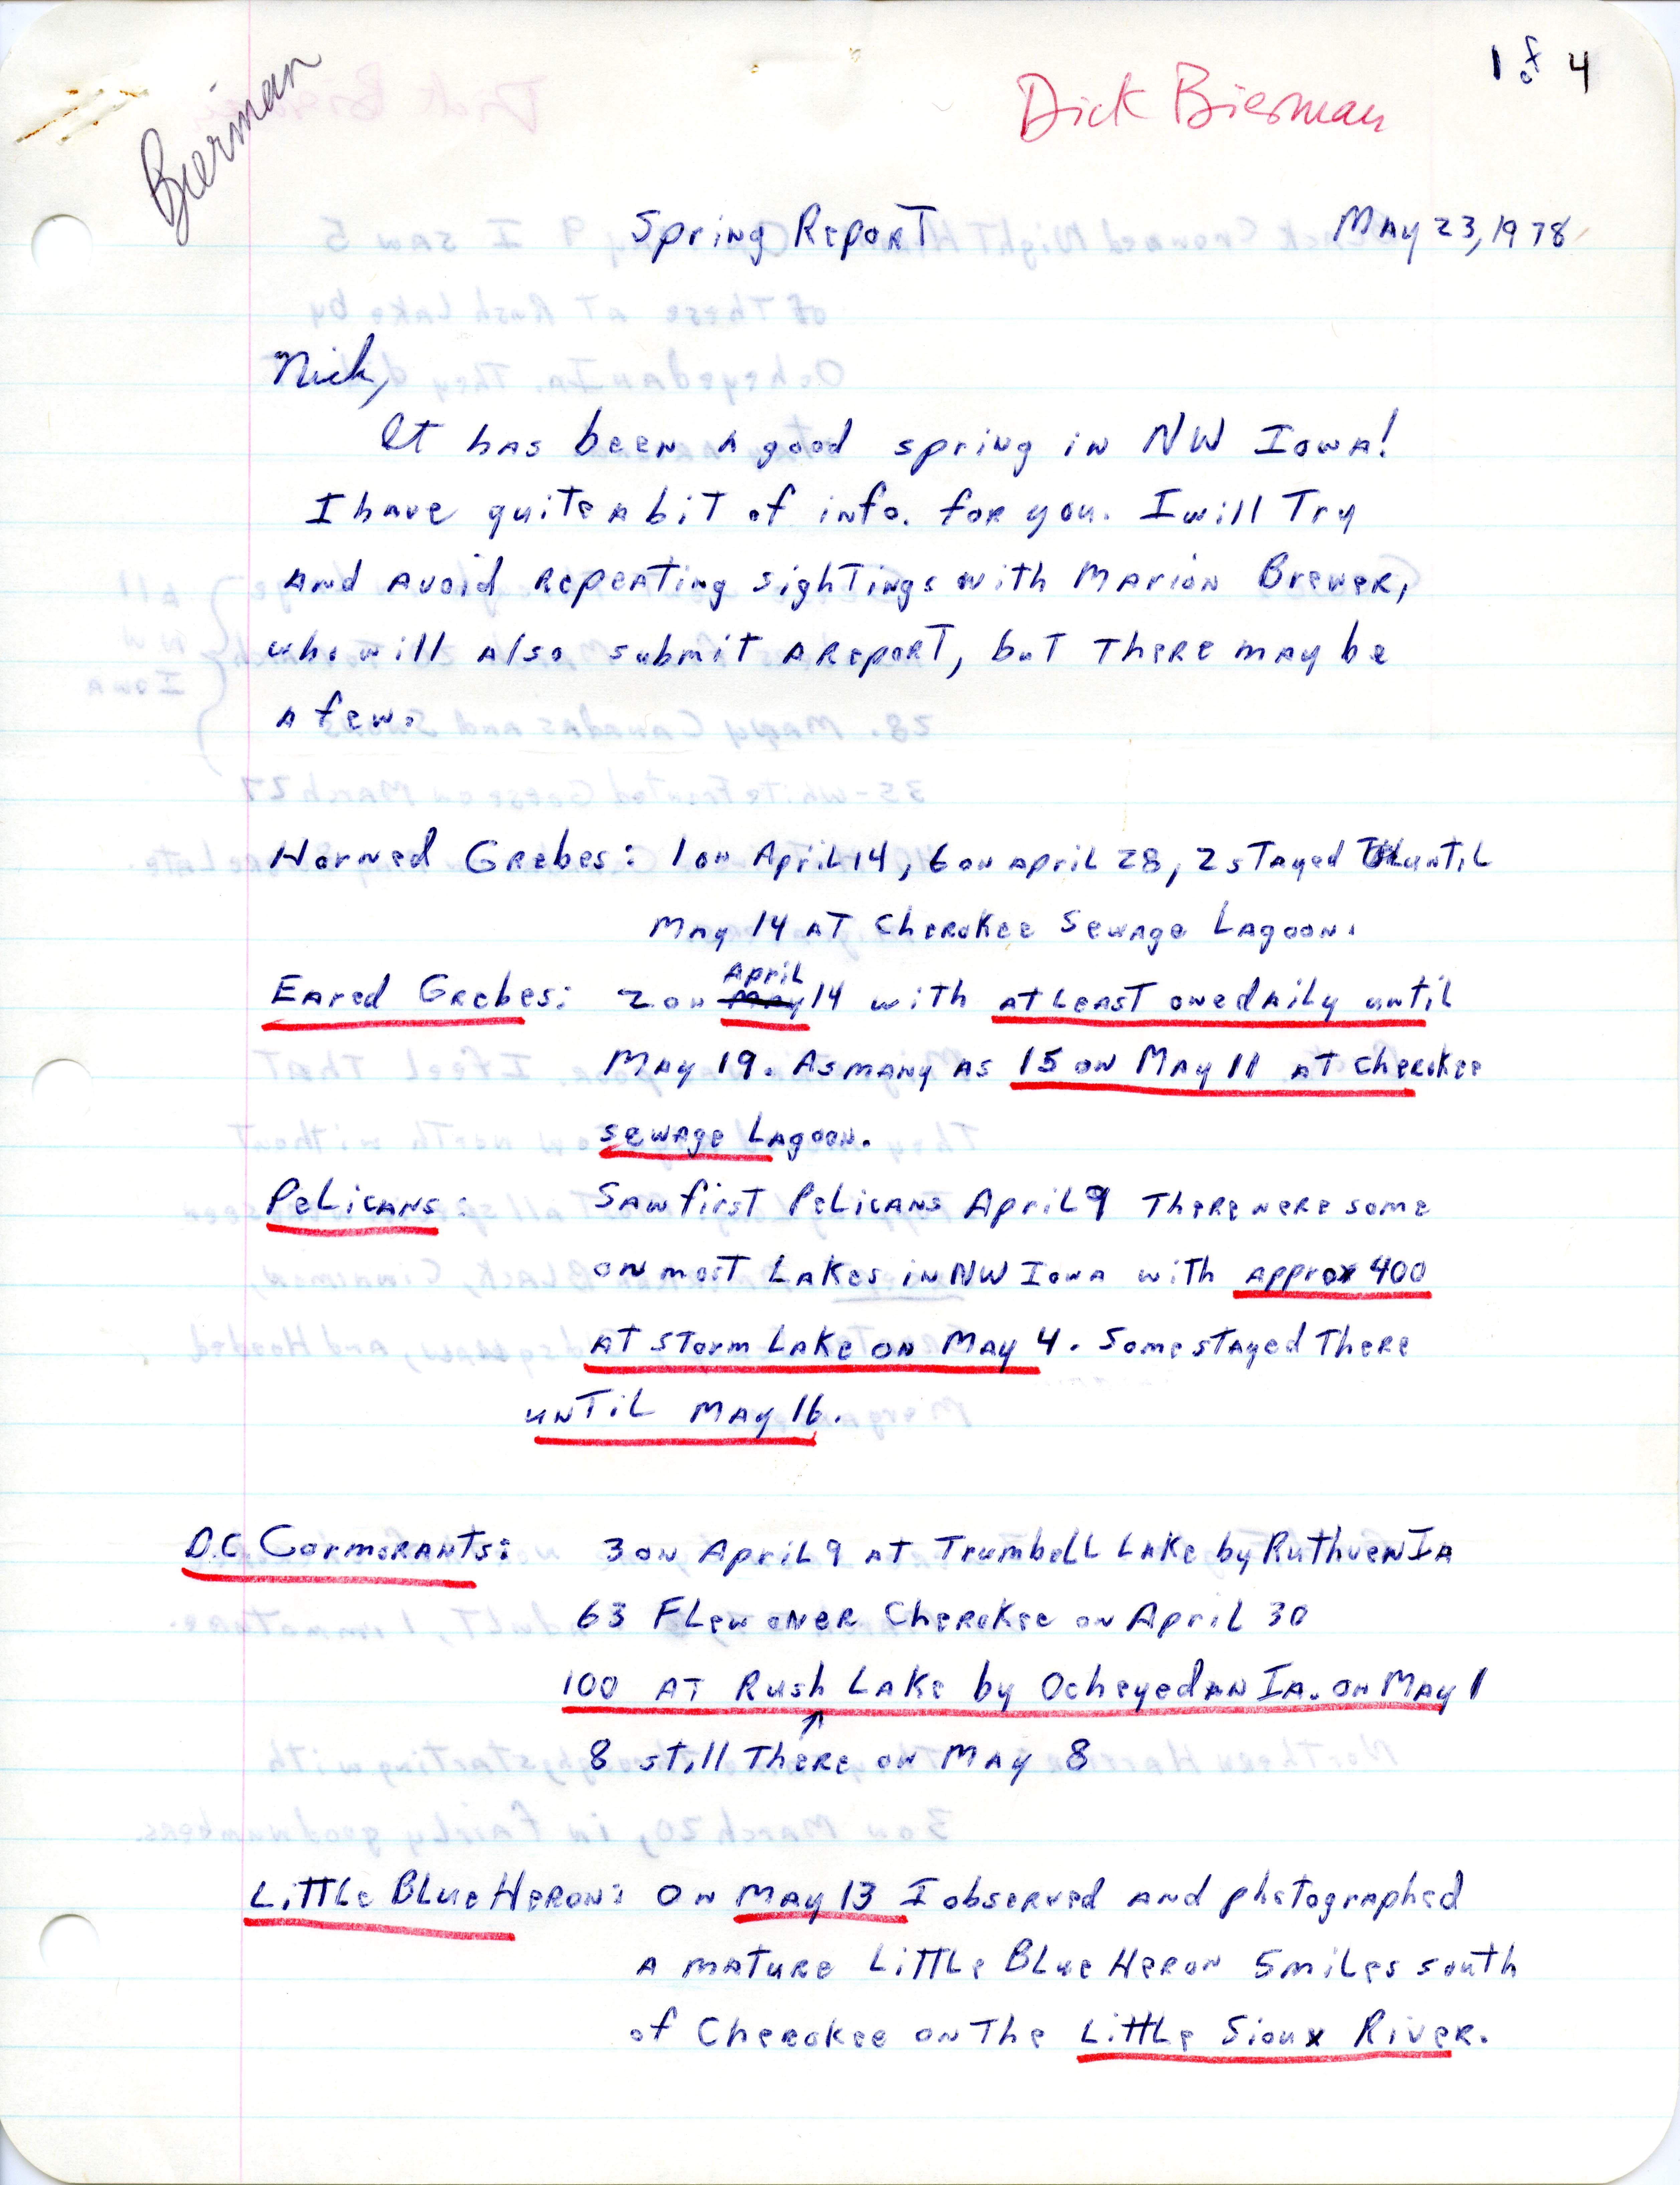 1 of 4
Bierman
Dick Bierman
Spring Report May 23, 1978
Nick,
It has been a good spring in NW Iowa!
I have quite a bit of info. for you. I will Try
and avoid repeating sightings with Marion Brewer,
who will also submit a report, but there may be
a few.
Horned Grebes: 1 on April 14, 6 on april 28, 2 stayed until
May 14 at Cherokee Sewage Lagoon.
April
Eared Grebes: 2 on May 14 with at least one daily until
May 19. As many as 15 on May 11 at Cherokee
sewage Lagoon.
Pelicans: Saw first Pelicans April 9 There were some
on most Lakes in NW Iowa with approx 400
at Storm Lake on May 4. Some stayed there
until May 16.
D.C. Cormorants: 3 on April 9 at Trumbell Lake by Ruthven Ia
63 Flew over Cherokee on April 30
100 at Rush Lake by Ocheyedan Ia. on May 1
↑
8 still There on May 8
Little Blue Heron: On May 13 I observed and photographed
a mature Little Blue Heron 5 miles south
of Cherokee on The Little Sioux River.